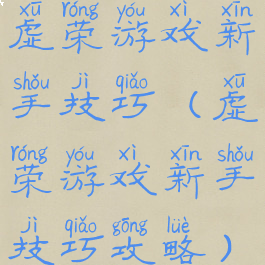 xū róng yóu xì xīn
虚荣游戏新
shǒu jì qiǎo xū
手技巧（虚
róng yóu xì xīn shǒu
荣游戏新手
jì qiǎo gōng lüè
技巧攻略）